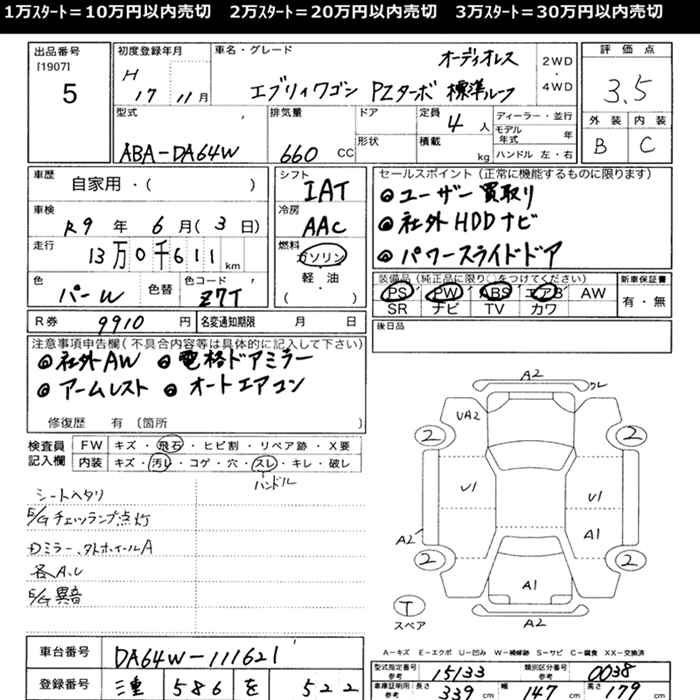 1万ｽﾀｰﾄ=10万円以内売切　2万ｽﾀｰﾄ=20万円以内売切　3万ｽﾀｰﾄ=30万円以内売切
出品番号
[1907]
5
初度登録年月
H
17 11月
車名・グレード
オーディオレス
エブリィワゴン PZターボ 標準ルーフ
2WD
・
4WD
評価点
3.5
外装 内装
B C
型式
ABA-DA64W
排気量
660 CC
ドア
形状
定員
4 人
積載
kg
ディーラー・並行
モデル年式 年
ハンドル 左・右
車歴
自家用・( )
車検
R9 年 6 月(3 日)
走行
13万0千611 km
色
パーW
色替
色コード
Z7T
R券 9910 円
名変通知期限 月 日
シフト
IAT
冷房
AAC
燃料
ガソリン
軽・油
( )
セールスポイント(正常に機能するものに限ります)
◎ユーザー買取り
◎社外HDDナビ
◎パワースライドドア
装備品(純正品に限り○をつけてください)
PS PW ABS エアB AW
SR ナビ TV カワ
新車保証書
有・無
後日品
注意事項申告欄(不具合内容等は具体的に記入して下さい)
◎社外AW ◎電格ドアミラー
◎アームレスト ◎オートエアコン
修復歴 有〔箇所 〕
検査員
記入欄
FW キズ・飛石・ヒビ割・リペア跡・X要
内装 キズ・汚レ・コゲ・穴・スレ・キレ・破レ
ハンドル
シートヘタリ
E/Gチェックランプ点灯
Dミラー、タトホイールA
各A.U
E/G異音
A2
クレ
UA2
2
2
U1
U1
A1
A2
2
2
A1
T
スペア
A2
A－キズ E－エクボ U－凹み W－補修跡 S－サビ C－腐食 XX－交換済
車台番号 DA64W-111621
登録番号 三重 586 を 522
型式指定番号
参考
15133
類別区分番号
参考
0038
車庫証明用・長さ
参考
339 cm
幅
147 cm
高さ
179 cm